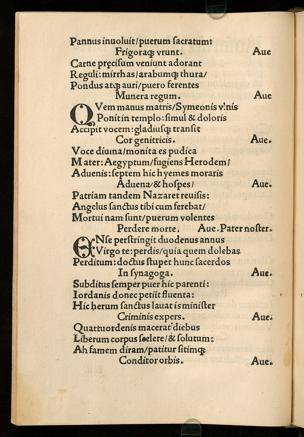 Pannus inuoluit/puerum sacratum:
Frigoraq; vrunt. Aue
Carne precisum veniunt adorant
Reguli: mirrhas/arabumq; thura/
Pondus atq; auri/puero ferentes
Munera regum. Aue
QVem manus matris/Symeonis vlnis
Ponit in templo: simul & doloris
Accipit vocem: gladiusq; transit
Cor genitricis. Aue.
Voce diuina/monita es pudica
Mater: Aegyptum/fugiens Herodem/
Aduenis: septem hic hyemes moraris
Aduena/& hospes/ Aue.
Patriam tandem Nazaret reuisis:
Angelus sanctus tibi cum ferebat/
Mortui nam sunt/puerum volentes
Perdere morte. Aue. Pater noster.
ENse perstringit duodenus annus
Virgo te: perdis/quia quem dolebas
Perditum: doctus stupet hunc sacerdos
In synagoga. Aue.
Subditus semper puer hic parenti:
Iordanis donec petiit fluenta:
Hic herum sanctus lauat is minister
Criminis expers. Aue.
Quattuordenis macerat' diebus
Liberum corpus scelere/& solutum:
Ah famem diram/patitur sitimq;
Conditor orbis. Aue.